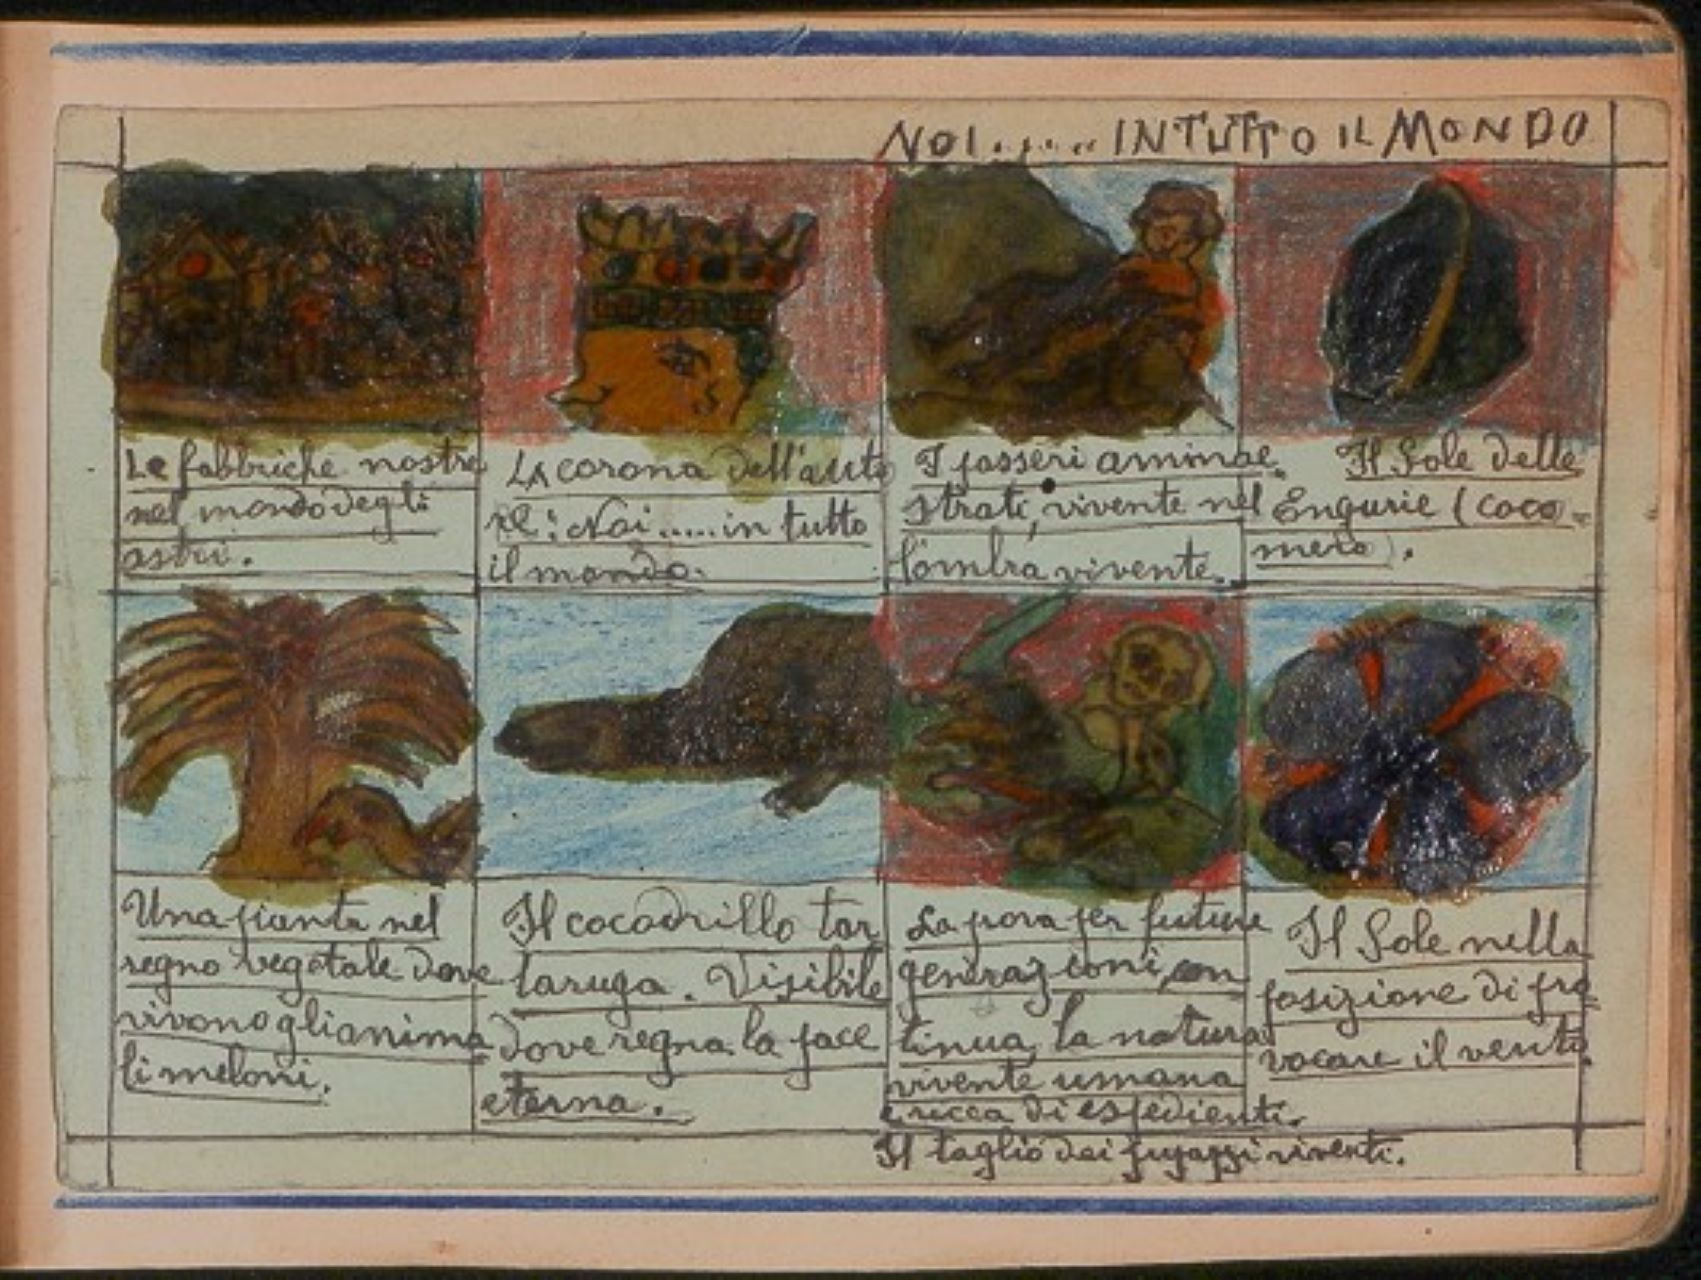 NOI...... IN TUTTO IL MONDO
Le fabbriche nostre
nel mondo degli
astri.
LA corona dell'auto
re: Noi.....in tutto
il mondo.
I passeri ammae
strati, vivente nel
l'ombra vivente.
Il Sole delle
Engurie (coco-
mero).
Una pianta nel
regno vegetale dove
vivono gli anima
li meloni.
Il cocodrillo tar
taruga. Visibile
dove regna la pace
eterna.
La pora per future
generazioni, con
tinua, la natura
vivente umana
è ricca di espedienti.
Il taglio dei viventi.
Il Sole nella
posizione di pro
vocare il vento.